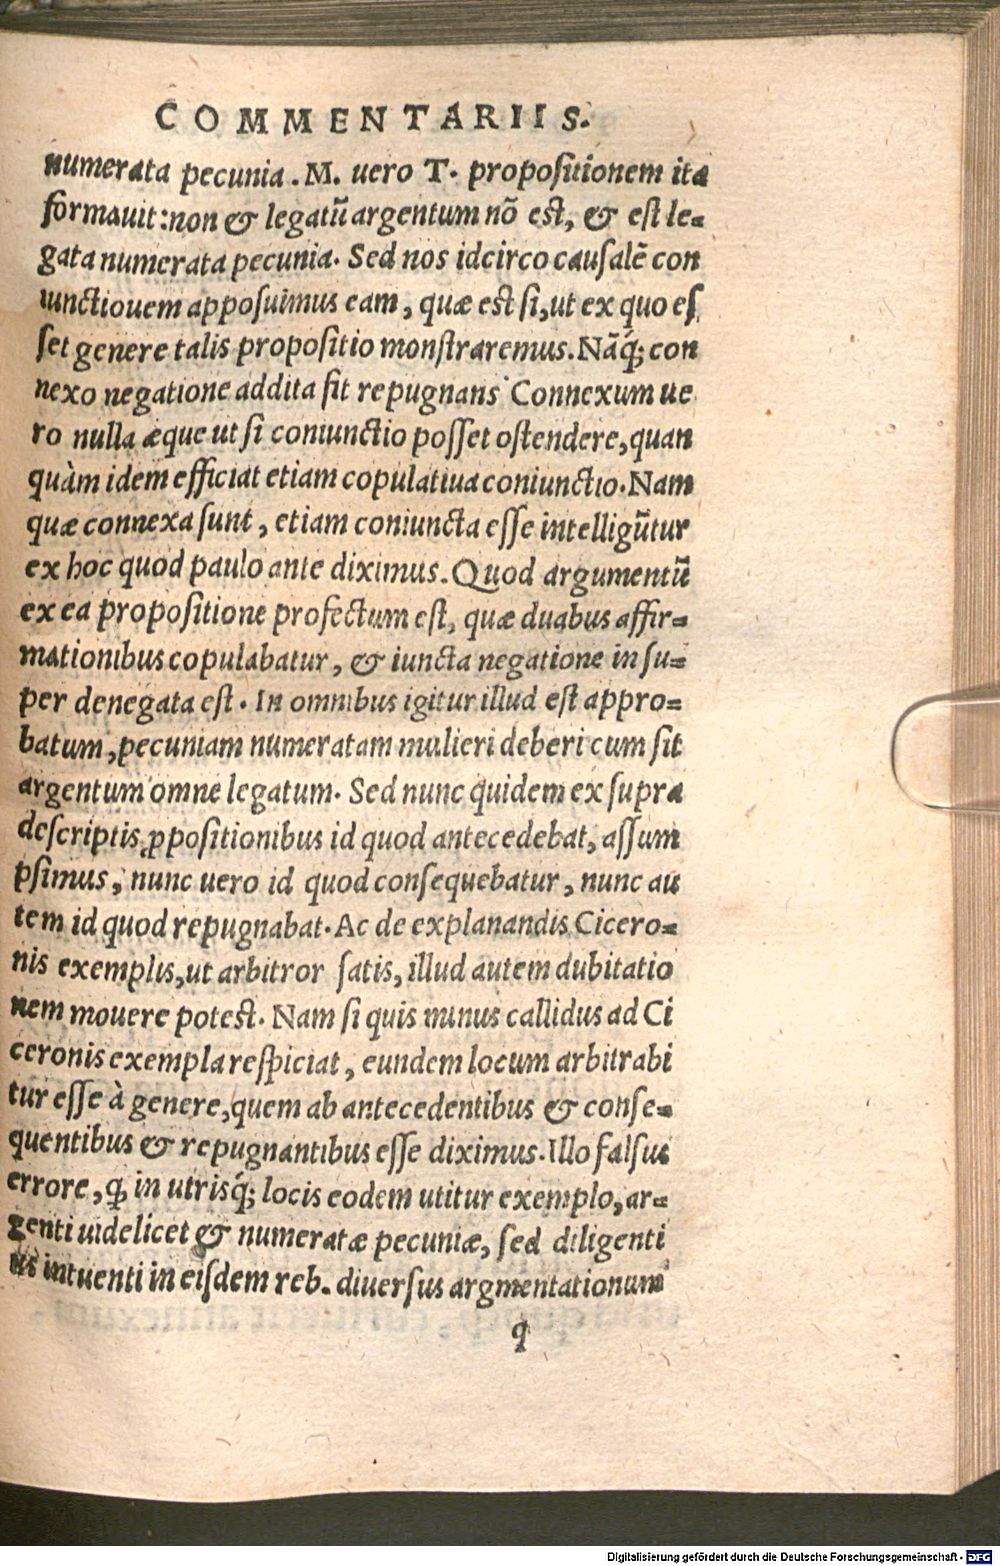 COMMENTARIIS.
numerata pecunia. M. uero T. propositionem ita
formauit: non & legatũ argentum nõ est, & est le-
gata numerata pecunia. Sed nos idcirco causalẽ con
iunctiouem apposuimus eam, quæ est si, ut ex quo es
set genere talis propositio monstraremus. Nãq́; con
nexo negatione addita fit repugnans Connexum ue
ro nulla æque ut si coniunctio posset ostendere, quan
quàm idem efficiat etiam copulatiua coniunctio. Nam
quæ connexa sunt, etiam coniuncta esse intelligũtur
ex hoc quod paulo ante diximus. Quod argumentũ
ex ea propositione profectum est, quæ duabus affir-
mationibus copulabatur, & iuncta negatione insu-
per denegata est. In omnibus igitur illud est appro-
batum, pecuniam numeratam mulieri deberi cum sit
argentum omne legatum. Sed nunc quidem ex supra
descriptis ꝓpositionibus id quod antecedebat, assum
psimus, nunc uero id quod consequebatur, nunc au
tem id quod repugnabat. Ac de explanandis Cicero-
nis exemplis, ut arbitror satis, illud autem dubitatio
nem mouere potest. Nam si quis minus callidus ad Ci
ceronis exempla respiciat, eundem locum arbitrabi
tur esse à genere, quem ab antecedentibus & conse-
quentibus & repugnantibus esse diximus. Illo falsus
errore, ꝙ in utrisq́; locis eodem utitur exemplo, ar-
genti uidelicet & numeratæ pecuniæ, sed diligenti
us intuenti in eisdem reb. diuersus argmentationum
q
Digitalisierung gefördert durch die Deutsche Forschungsgemeinschaft - DFG